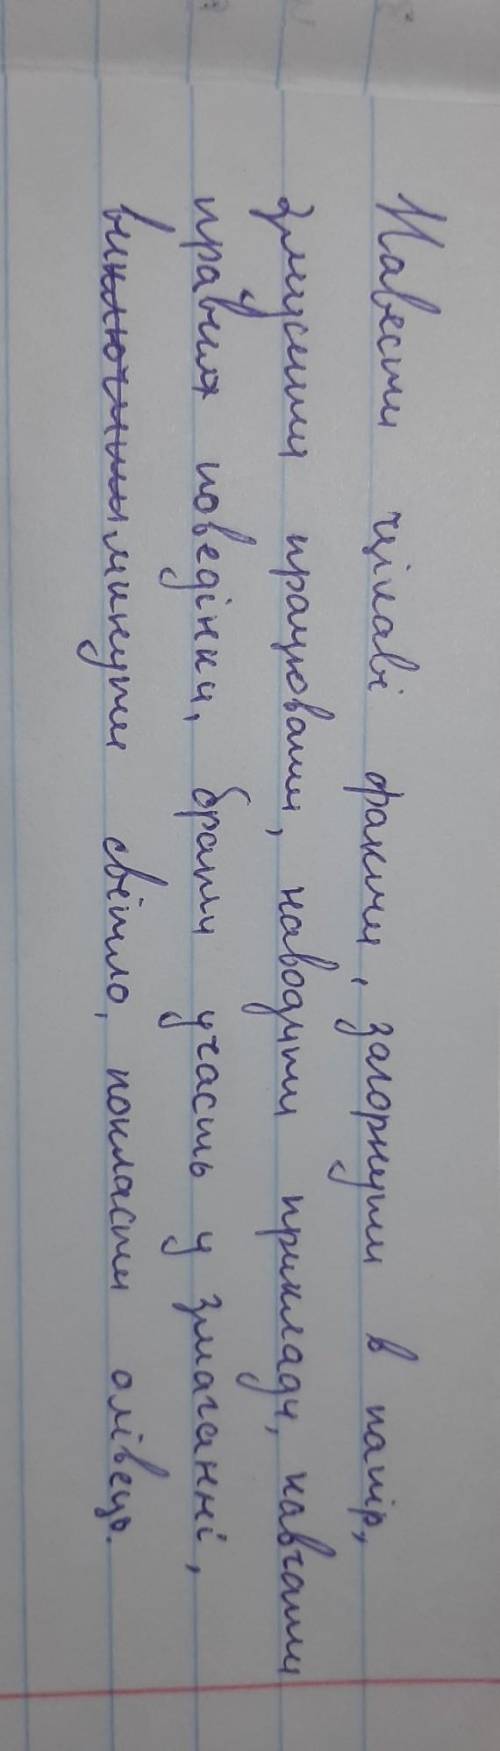 Навести цікаві факти, загорнути в папір,
змусити працювати, наводити приклади, навчати
правил поведінки, брати участь у змаганні,
вимикнути світло, покласти олівець.